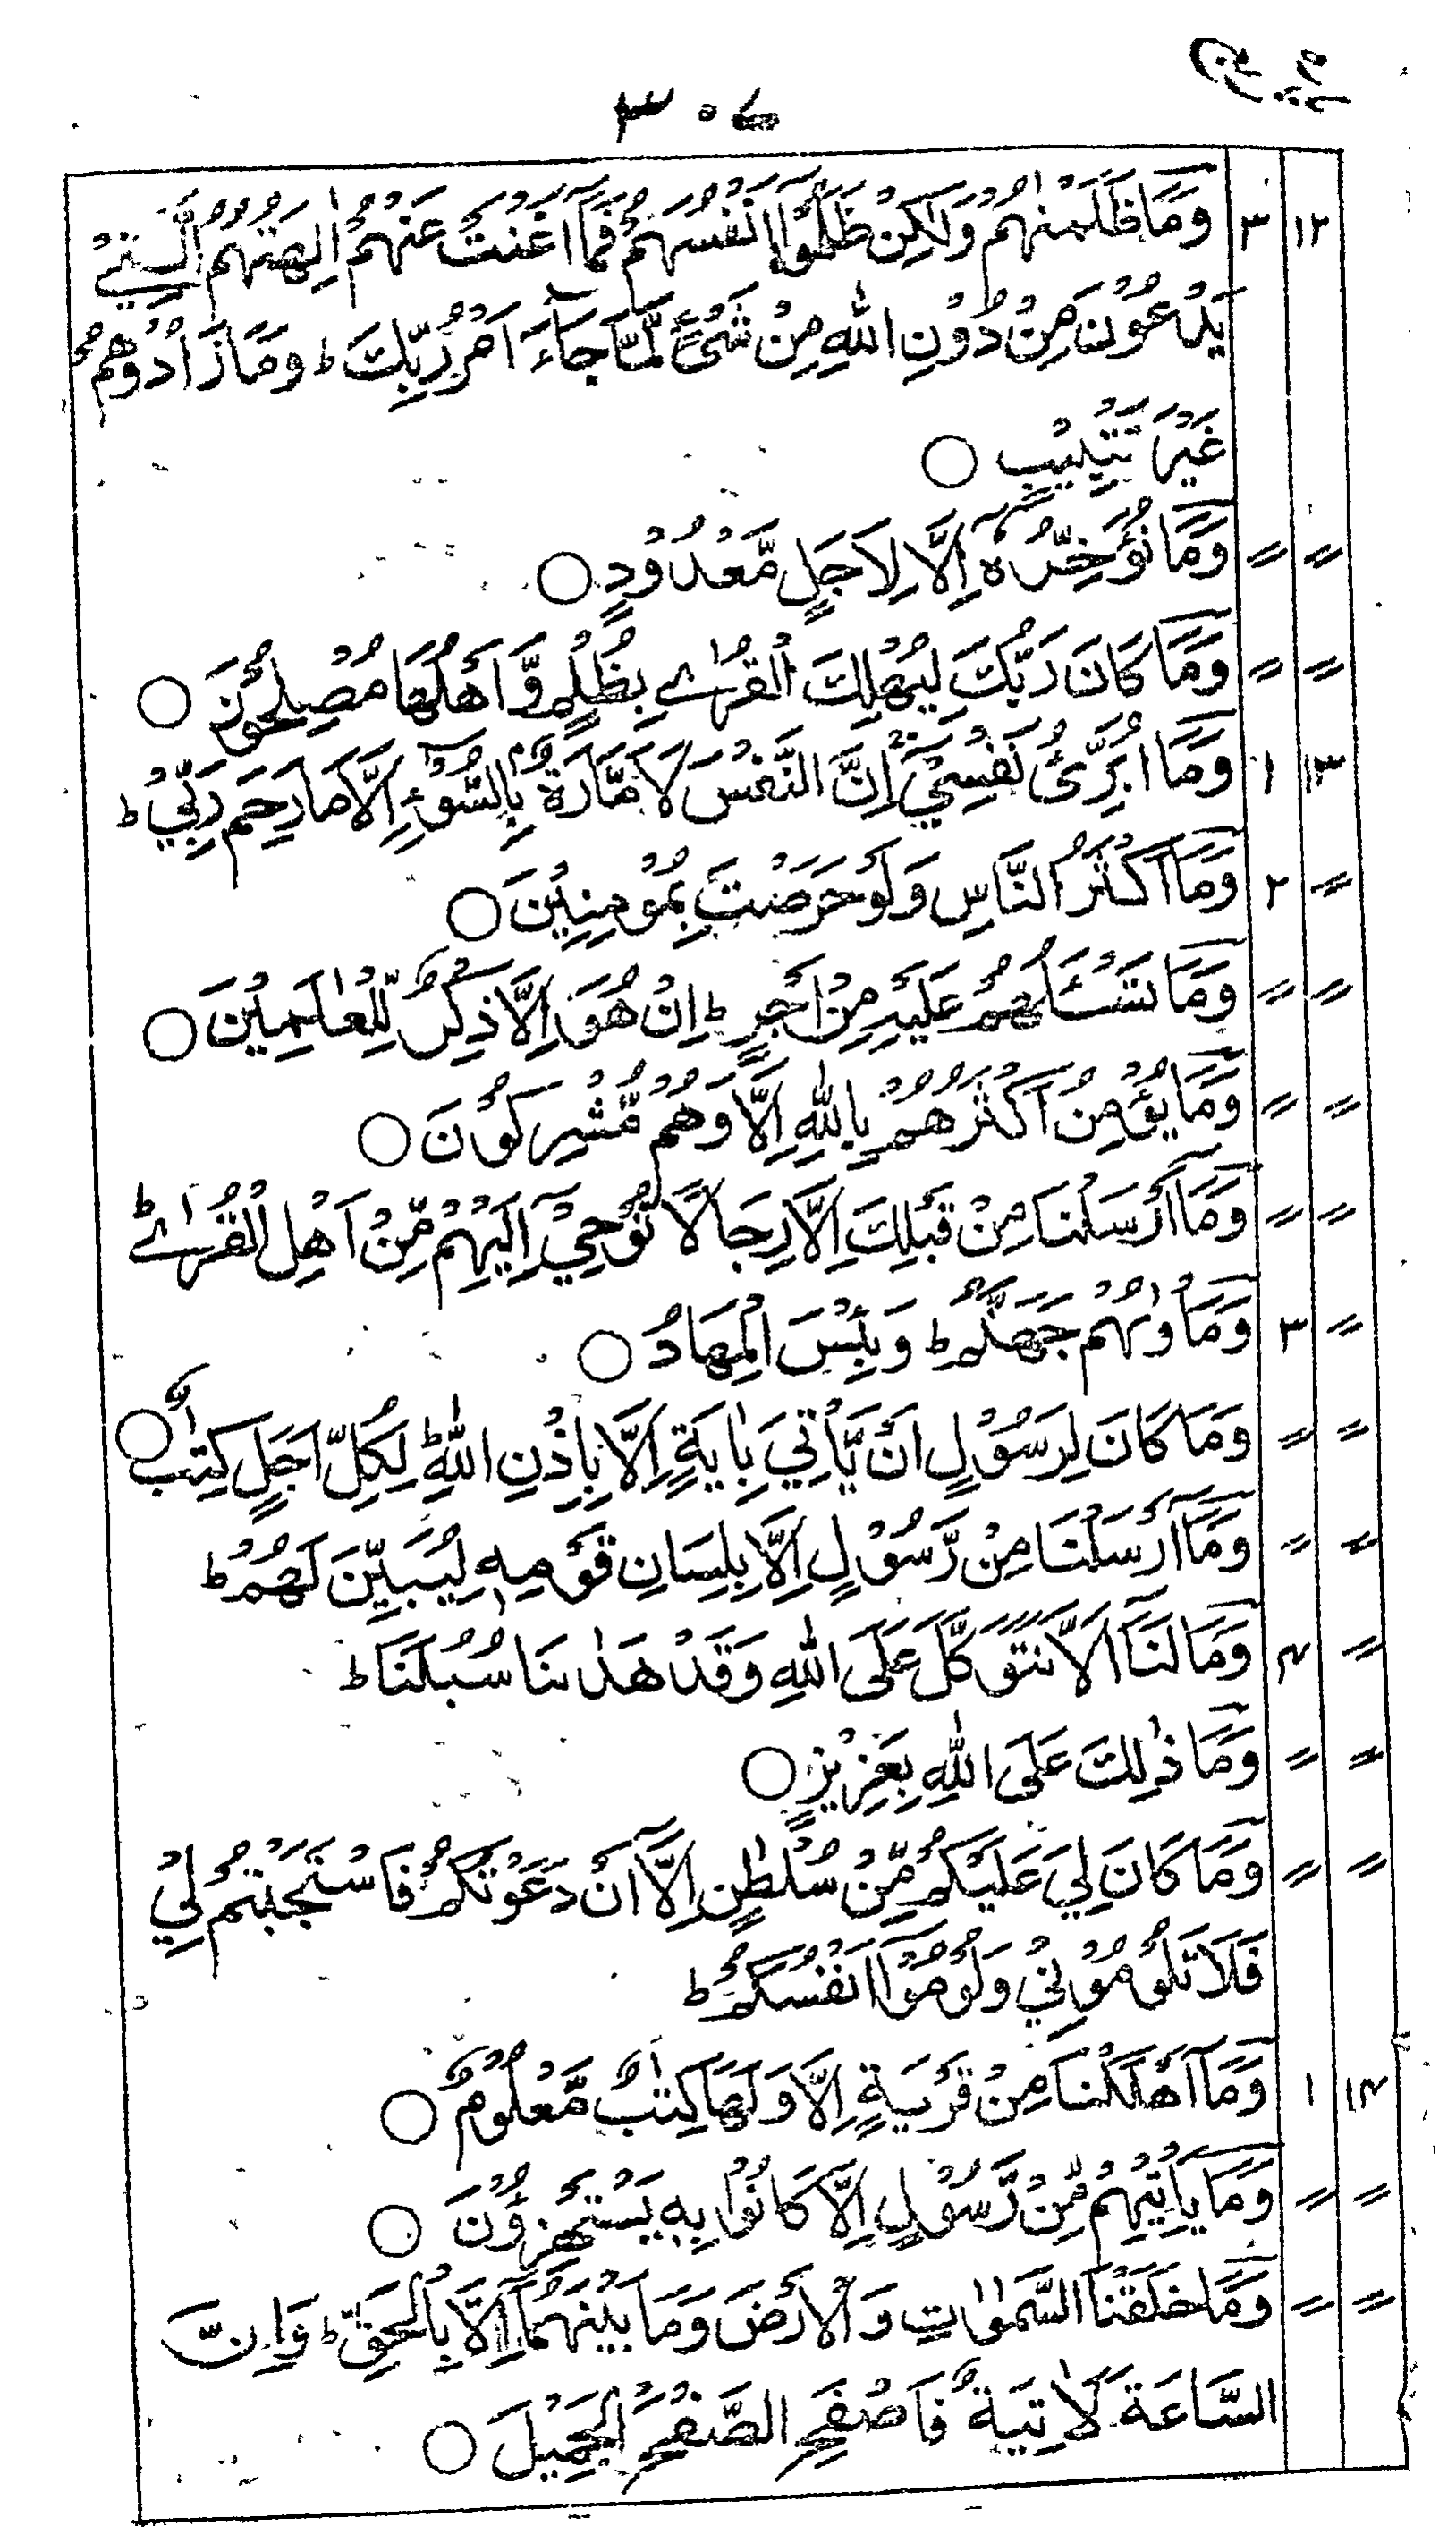 ۳۰۷
۱۲ ۳ وَمَا ظَلَمْنٰهُمْ وَلٰكِنْ ظَلَمُوْٓا اَنْفُسَهُمْ فَمَآ اَغْنَتْ عَنْهُمْ اٰلِهَتُهُمُ الَّتِيْ
يَدْعُوْنَ مِنْ دُوْنِ اللّٰهِ مِنْ شَيْءٍ لَّمَّا جَآءَ اَمْرُ رَبِّكَ ؕ وَمَا زَادُوْهُمْ
غَيْرَ تَتْبِيْبٍ ○
〃 〃 وَمَا نُؤَخِّرُهٗٓ اِلَّا لِاَجَلٍ مَّعْدُوْدٍ ○
〃 〃 وَمَا كَانَ رَبُّكَ لِيُهْلِكَ الْقُرٰى بِظُلْمٍ وَّاَهْلُهَا مُصْلِحُوْنَ ○
۱۳ ۱ وَمَآ اُبَرِّئُ نَفْسِيْ ۚ اِنَّ النَّفْسَ لَاَمَّارَةٌۢ بِالسُّوْٓءِ اِلَّا مَا رَحِمَ رَبِّيْ ؕ
〃 ۲ وَمَآ اَكْثَرُ النَّاسِ وَلَوْ حَرَصْتَ بِمُؤْمِنِيْنَ ○
〃 〃 وَمَا تَسْـَٔلُهُمْ عَلَيْهِ مِنْ اَجْرٍ ؕ اِنْ هُوَ اِلَّا ذِكْرٌ لِّلْعٰلَمِيْنَ ○
〃 〃 وَمَا يُؤْمِنُ اَكْثَرُهُمْ بِاللّٰهِ اِلَّا وَهُمْ مُّشْرِكُوْنَ ○
〃 〃 وَمَآ اَرْسَلْنَا مِنْ قَبْلِكَ اِلَّا رِجَالًا نُّوْحِيْٓ اِلَيْهِمْ مِّنْ اَهْلِ الْقُرٰى ؕ
〃 ۳ وَمَاْوٰىهُمْ جَهَنَّمُ ؕ وَبِئْسَ الْمِهَادُ ○
〃 〃 وَمَا كَانَ لِرَسُوْلٍ اَنْ يَّاْتِيَ بِاٰيَةٍ اِلَّا بِاِذْنِ اللّٰهِ ؕ لِكُلِّ اَجَلٍ كِتٰبٌ ○
〃 〃 وَمَآ اَرْسَلْنَا مِنْ رَّسُوْلٍ اِلَّا بِلِسَانِ قَوْمِهٖ لِيُبَيِّنَ لَهُمْ ؕ
〃 ۴ وَمَا لَنَآ اَلَّا نَتَوَكَّلَ عَلَى اللّٰهِ وَقَدْ هَدٰىنَا سُبُلَنَا ؕ
〃 〃 وَمَا ذٰلِكَ عَلَى اللّٰهِ بِعَزِيْزٍ ○
〃 〃 وَمَا كَانَ لِيَ عَلَيْكُمْ مِّنْ سُلْطٰنٍ اِلَّآ اَنْ دَعَوْتُكُمْ فَاسْتَجَبْتُمْ لِيْ
فَلَا تَلُوْمُوْنِيْ وَلُوْمُوْٓا اَنْفُسَكُمْ ؕ
۱۴ ۱ وَمَآ اَهْلَكْنَا مِنْ قَرْيَةٍ اِلَّا وَلَهَا كِتٰبٌ مَّعْلُوْمٌ ○
〃 〃 وَمَا يَاْتِيْهِمْ مِّنْ رَّسُوْلٍ اِلَّا كَانُوْا بِهٖ يَسْتَهْزِءُوْنَ ○
〃 〃 وَمَا خَلَقْنَا السَّمٰوٰتِ وَالْاَرْضَ وَمَا بَيْنَهُمَآ اِلَّا بِالْحَقِّ ؕ وَاِنَّ
السَّاعَةَ لَاٰتِيَةٌ فَاصْفَحِ الصَّفْحَ الْجَمِيْلَ ○